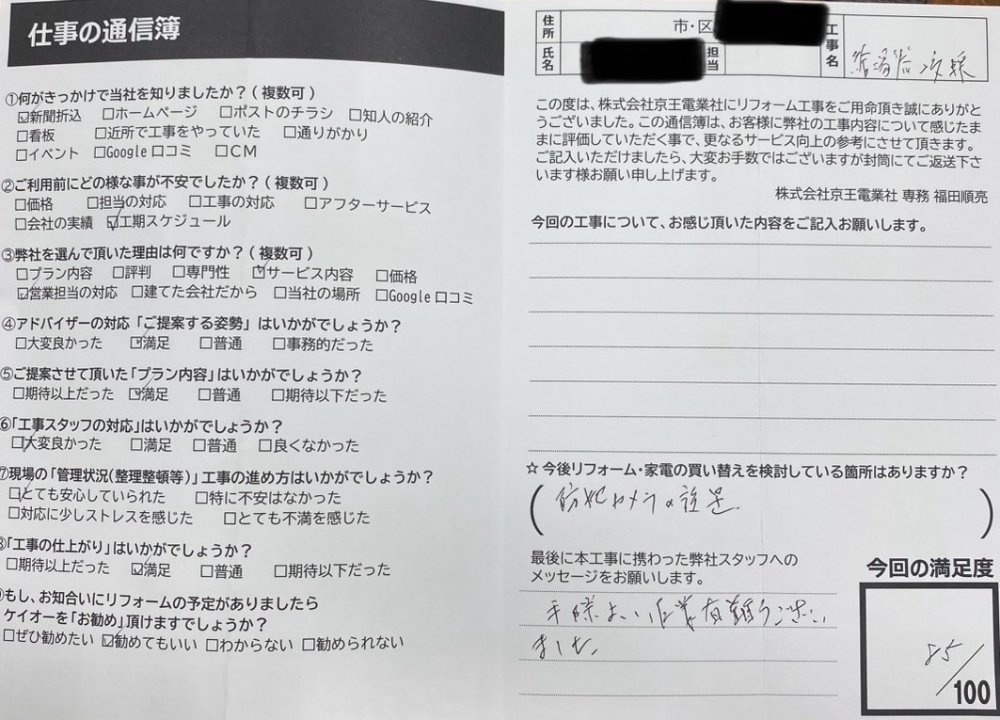 仕事の通信簿
①何がきっかけで当社を知りましたか?(複数可)
☑新聞折込 □ホームページ □ポストのチラシ □知人の紹介
□看板 □近所で工事をやっていた □通りがかり
□イベント □Google口コミ □CM
②ご利用前にどの様な事が不安でしたか?(複数可)
□価格 □担当の対応 □工事の対応 □アフターサービス
□会社の実績 ☑工期スケジュール
③弊社を選んで頂いた理由は何ですか?(複数可)
□プラン内容 □評判 □専門性 ☑サービス内容 □価格
☑営業担当の対応 □建てた会社だから □当社の場所 □Google口コミ
④アドバイザーの対応「ご提案する姿勢」はいかがでしょうか?
□大変良かった ☑満足 □普通 □事務的だった
⑤ご提案させて頂いた「プラン内容」はいかがでしょうか?
□期待以上だった ☑満足 □普通 □期待以下だった
⑥「工事スタッフの対応」はいかがでしょうか?
☑大変良かった □満足 □普通 □良くなかった
⑦現場の「管理状況(整理整頓等)」工事の進め方はいかがでしょうか?
☑とても安心していられた □特に不安はなかった
□対応に少しストレスを感じた □とても不満を感じた
⑧「工事の仕上がり」はいかがでしょうか?
□期待以上だった ☑満足 □普通 □期待以下だった
もし、お知合いにリフォームの予定がありましたら
ケイオーを「お勧め」頂けますでしょうか?
□ぜひ勧めたい ☑勧めてもいい □わからない □勧められない
住所 市・区 工事名
氏名 担当
この度は、株式会社京王電業社にリフォーム工事をご用命頂き誠にありがと
うございました。この通信簿は、お客様に弊社の工事内容について感じたま
まに評価していただく事で、更なるサービス向上の参考にさせて頂きます。
ご記入いただけましたら、大変お手数ではございますが封筒にてご返送下さ
います様お願い申し上げます。
株式会社京王電業社 専務 福田順亮
今回の工事について、お感じ頂いた内容をご記入お願いします。
☆今後リフォーム・家電の買い替えを検討している箇所はありますか?
(防犯カメラの設置)
最後に本工事に携わった弊社スタッフへの
メッセージをお願いします。
手際よい作業有難うござい
ました。
今回の満足度
85/100